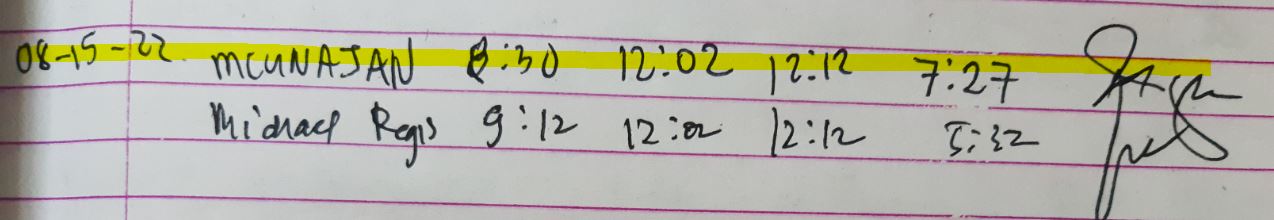 08-15-22 MCUNAJAN 8:30 12:02 12:12 7:27
Michael Regis 9:12 12:02 12:12 5:32